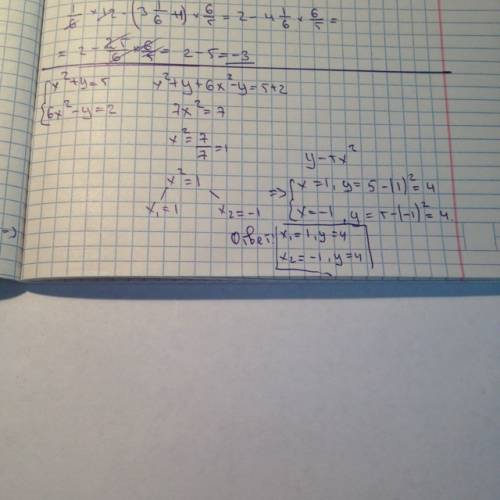 1/6 × 12 − (3 1/6 + 1) × 6/5 = 2 − 4 1/6 × 6/5 =
= 2 − 25/6 × 6/5 = 2 − 5 = −3
{ x² + y = 5     x² + y + 6x² − y = 5 + 2
{ 6x² − y = 2     7x² = 7
x² = 7/7 = 1
x² = 1
x₁ = 1     x₂ = −1
y − 5x²
=> { x = 1, y = 5 − (1)² = 4
{ x = −1, y = 5 − (−1)² = 4.
Ответ: x₁ = 1, y = 4
x₂ = −1, y = 4
=>